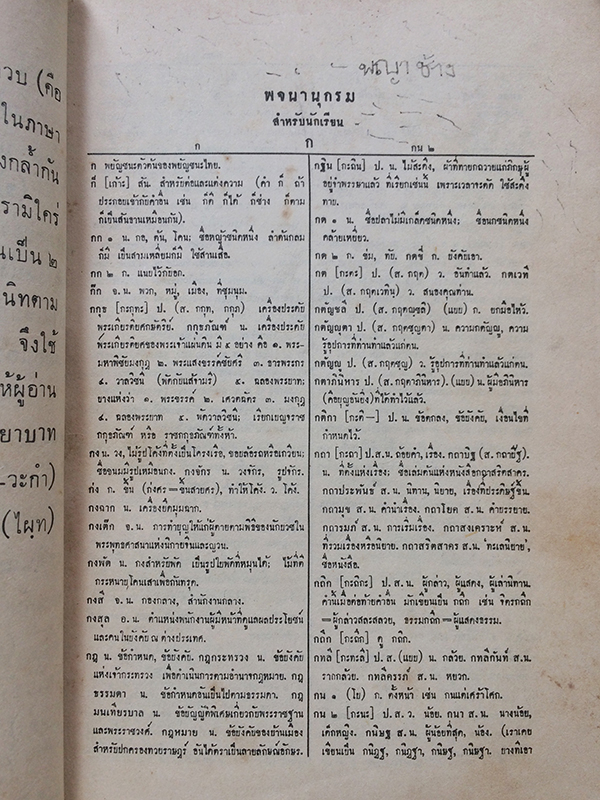 วบ (คือ
ในภาษา
งกล้ำกัน
รามิใคร่
นเป็น ๒
นิทตาม
จึงใช้
ห้ผู้อ่าน
ยาบาท
-วะกำ)
(ไผฺท)
พญาช้าง
พจนานุกรม
สำหรับนักเรียน
ก
ก
กน ๒
ก พยัญชนะตัวต้นของพยัญชนะไทย.
ก็ [เก้าะ] สัน. สำหรับต่อและแต่งความ (คำ ก็ ถ้า
ประกอบเข้ากับคำอื่น เช่น ก็ดี ก็ได้ ก็ช่าง ก็ตาม
ก็เป็นสันธานเหมือนกัน).
กก ๑ น. กอ, ต้น, โคน; ชื่อหญ้าชนิดหนึ่ง ลำต้นกลม
ก็มี เป็นสามเหลี่ยมก็มี ใช้สานเสื่อ.
กก ๒ ก. แนบไว้กับอก.
ก๊ก จ.น. พวก, หมู่, เมือง, ที่ชุมนุม.
กกุธ [กะกุทะ] ป. (ส. กกุท, กกุภ) เครื่องประดับ
พระเกียรติยศกษัตริย์. กกุธภัณฑ์ น. เครื่องประดับ
พระเกียรติยศของพระเจ้าแผ่นดิน มี ๕ อย่าง คือ ๑. พระ-
มหาพิชัยมงกุฎ ๒. พระแสงขรรค์ชัยศรี ๓. ธารพระกร
๔. วาลวิชนี (พัดกับแส้จามรี) ๕. ฉลองพระบาท;
บางแห่งว่า ๑. พระขรรค์ ๒. เศวตฉัตร ๓. มงกุฎ
๔. ฉลองพระบาท ๕. พัดวาลวิชนี เรียกเบญจราช
กกุธภัณฑ์ หรือ ราชกกุธภัณฑ์ก็ว่า.
กง น. วง, ไม้รูปโค้งที่ตั้งเป็นโครงเรือ, ขอบล้อรถหรือเกวียน;
ชื่อขนมมีรูปเหมือนกง. กงจักร น. วงจักร, รูปจักร.
ก่ง ก. ขึ้น (ก่งศร=ขึ้นสายศร), ทำให้โค้ง. ว. โค้ง.
กงฉาก น. เครื่องยึดมุมฉาก.
กงเต๊ก จ.น. การทำบุญให้แก่ผู้ตายตามพิธีของนักบวชใน
พระพุทธศาสนาแห่งนิกายจีนและญวน.
กงพัด น. กงสำหรับพัด เป็นรูปใบพัดที่หมุนได้; ไม้ที่ตี
กระหนาบโคนเสาเพื่อกันทรุด.
กงสี จ.น. กองกลาง, สำนักงานกลาง.
กงสุล อ.น. ตำแหน่งพนักงานผู้มีหน้าที่ดูแลผลประโยชน์
และคนในบังคับ ณ ต่างประเทศ.
กฎ น. ข้อกำหนด, ข้อบังคับ. กฎกระทรวง น. ข้อบังคับ
แห่งเจ้ากระทรวง เพื่อดำเนินการตามอำนาจกฎหมาย. กฎ
ธรรมดา น. ข้อกำหนดอันเป็นไปตามธรรมดา. กฎ
มนเทียรบาล น. ข้อบัญญัติพิเศษเกี่ยวกับพระราชฐาน
และพระราชวงศ์. กฎหมาย น. ข้อบังคับของบ้านเมือง
สำหรับปกครองทวยราษฎร์ อันได้ตราเป็นลายลักษณ์อักษร.
กฐิน [กะถิน] ป. น. ไม้สะดึง, ผ้าที่ทายกถวายแก่ภิกษุผู้
อยู่จำพรรษาแล้ว ที่เรียกเช่นนี้ เพราะเวลาจะตัด ใช้สะดึง
ทาบ.
กด ๑ น. ชื่อปลาไม่มีเกล็ดชนิดหนึ่ง; ชื่อนกชนิดหนึ่ง
คล้ายเหยี่ยว.
กด ๒ ก. ข่ม, ทับ. กดขี่ ก. บังคับเอา.
กต [กะตะ] ป. (ส. กฤต) ว. อันทำแล้ว. กตเวที
ป. (ส. กฤตเวทินฺ) ว. สนองคุณท่าน.
กตัญชลี ป. (ส. กฤตญชลี) (แบบ) ก. ยกมือไหว้.
กตัญญุตา ป. (ส. กฤตชฺญตา) น. ความกตัญญู, ความ
รู้อุปการที่ท่านทำแล้วแก่ตน.
กตัญญู ป. (ส. กฤตชฺญ) ว. รู้อุปการที่ท่านทำแล้วแก่ตน.
กตาภินิหาร ป. (ส. กฤตาภินิหาร).(แบบ) น. ผู้มีอภินิหาร
(คือบุญอันยิ่ง) ที่ได้ทำไว้แล้ว.
กติกา [กะติ—] ป. น. ข้อตกลง, ข้อบังคับ, เงื่อนไขที่
กำหนดไว้.
กถา [กะถา] ป.ส.น. ถ้อยคำ, เรื่อง.
น. ที่ตั้งแห่งเรื่อง; ชื่อเล่มต้นแห่งหนังสือกถาสริตสาคร.
กถาประพันธ์ ส.น. นิทาน, นิยาย, เรื่องที่ประดิษฐ์ขึ้น.
กถามุข ส.น. คำนำเรื่อง. กถาโยค ส.น. คำบรรยาย.
กถารมภ์ ส.น. การเริ่มเรื่อง. กถาสงเคราะห์ ส.น.
ที่รวมเรื่องหรือนิยาย. กถาสริตสาคร ส.น. 'ทะเลนิยาย',
ชื่อหนังสือ.
กถิก [กะถิกะ] ป.ส.น. ผู้กล่าว, ผู้แสดง, ผู้เล่านิทาน.
คำนี้เมื่อต่อท้ายคำอื่น มักเขียนเป็น กถึก เช่น จิตรกถึก
=ผู้กล่าวสละสลวย, ธรรมกถึก=ผู้แสดงธรรม.
กถึก [กะถึก] ดู กถิก.
กทลี [กะทะลี] ป.ส.(แบบ) น. กล้วย. กทลีกันท์ ส.น.
รากกล้วย. กทลีครรภ์ ส.น. หยวก.
กน ๑ (โบ) ก. ตั้งหน้า เช่น กนแต่เศร้าโศก.
กน ๒ [กะนะ] ป.ส.ว. น้อย. กนา ส.น. นางน้อย,
เด็กหญิง. กนิษฐ ส.น. ผู้น้อยที่สุด, น้อง. (เราเคย
เขียนเป็น กนิฏฐ, กนิฏฐา, กนิษฐ, กนิษฐา. บางทีเอา